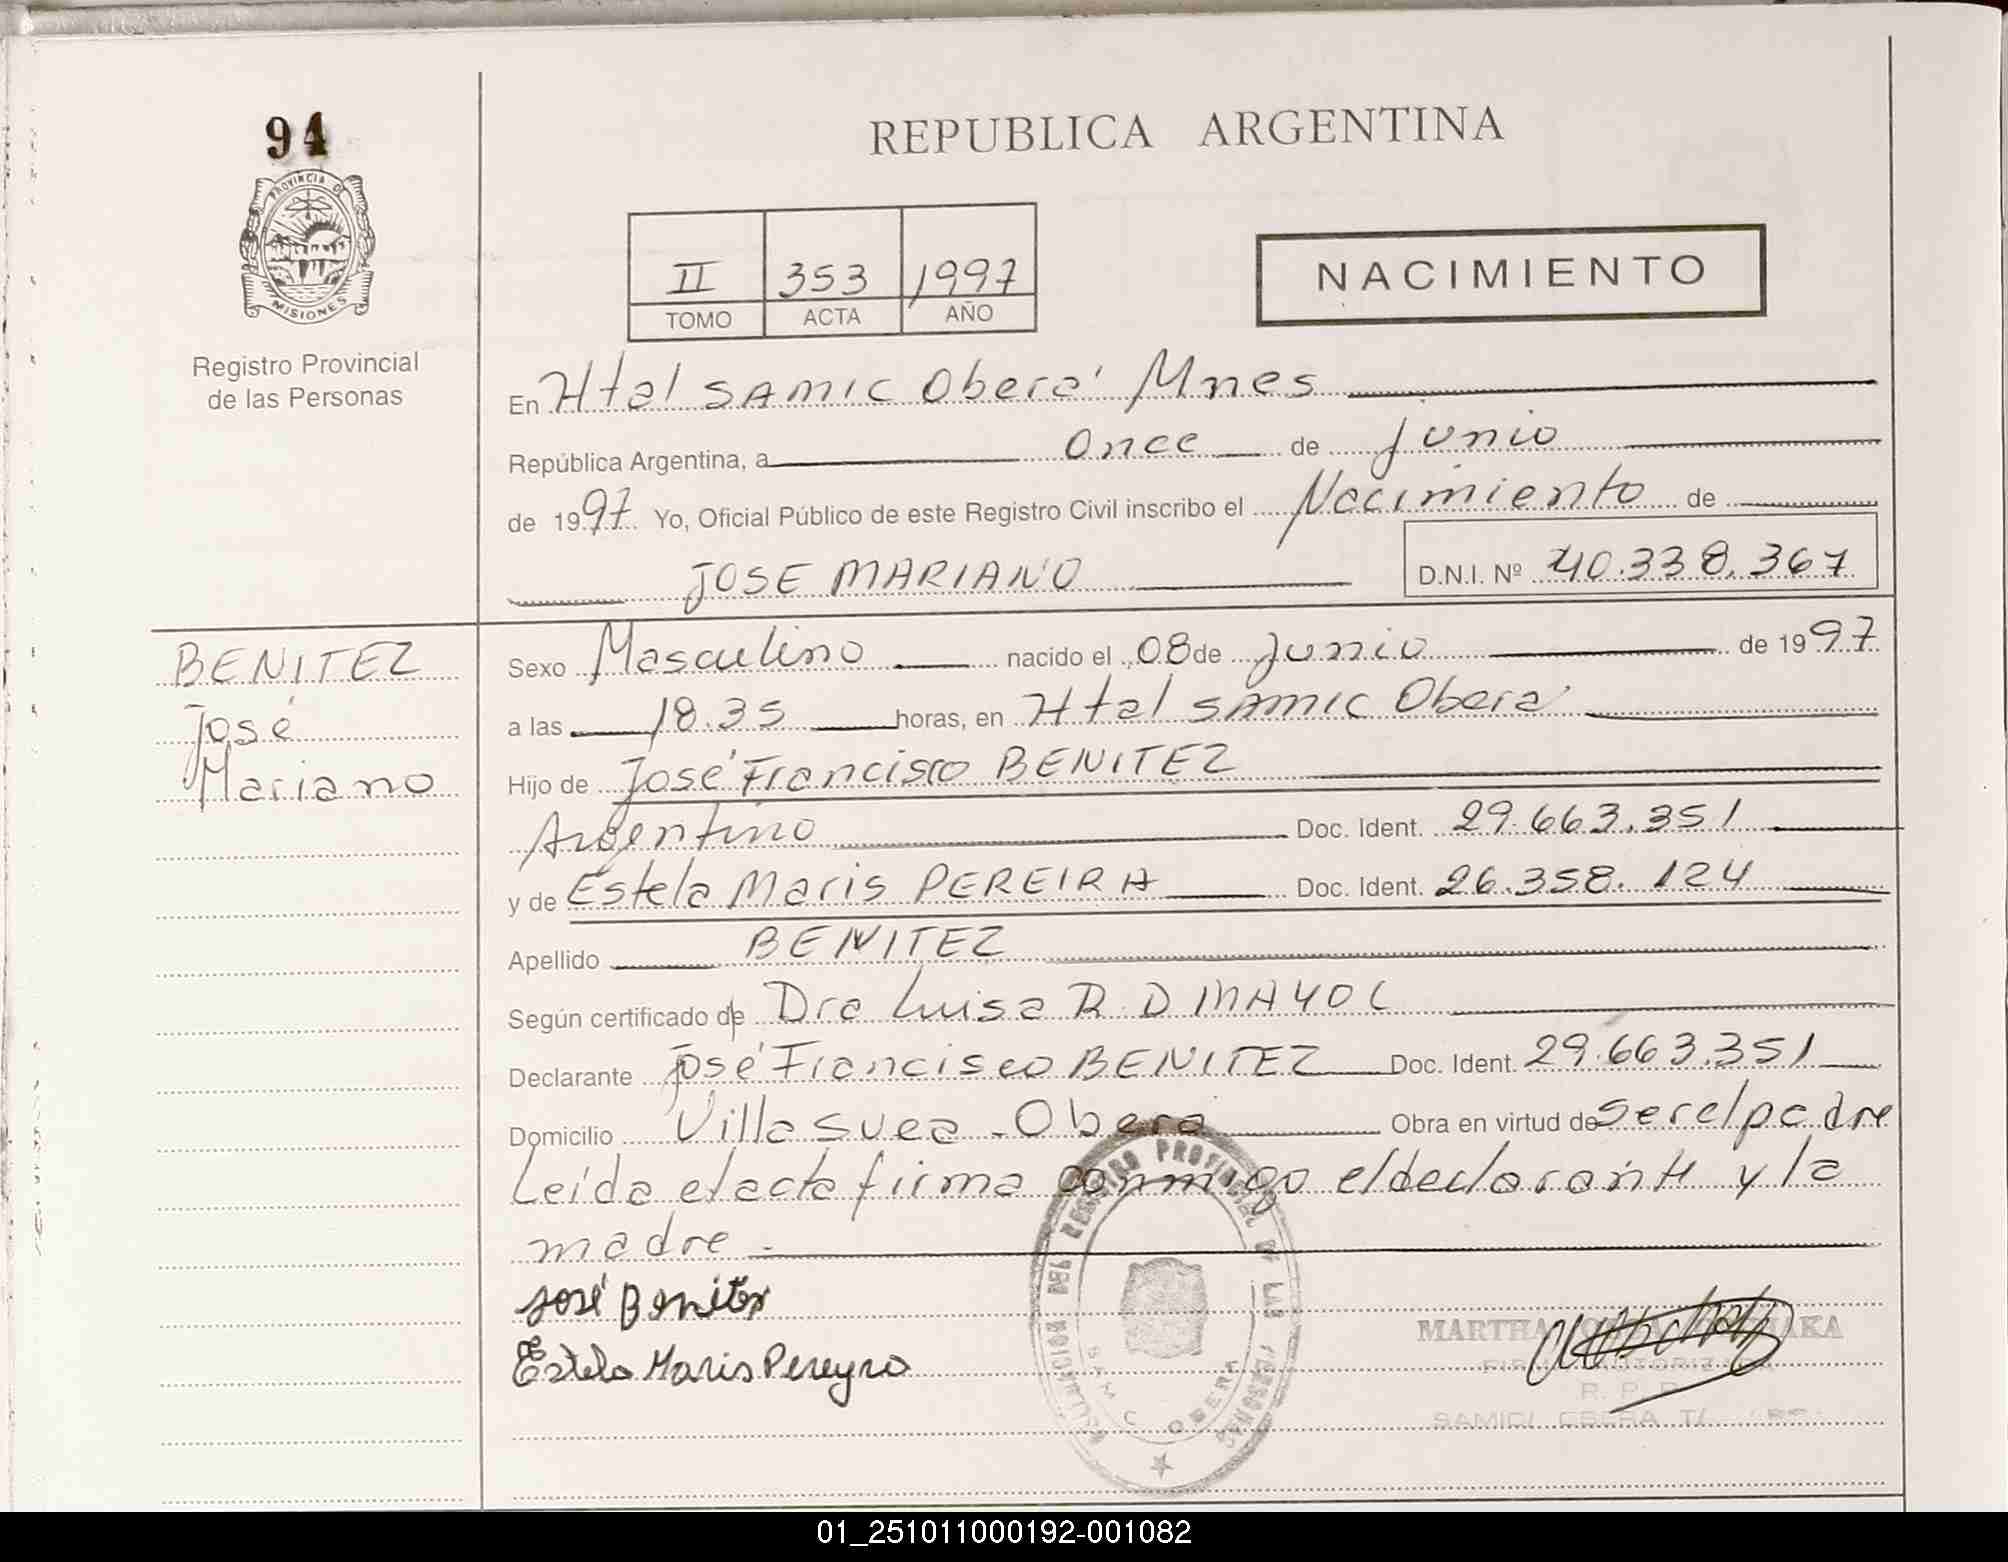 94
PROVINCIA DE
MISIONES
Registro Provincial
de las Personas
REPUBLICA ARGENTINA
II 353 1997
TOMO ACTA AÑO
NACIMIENTO
En Htal SAMIC Oberá Mnes
República Argentina, a Once de junio
de 1997 Yo, Oficial Público de este Registro Civil inscribo el Nacimiento de
JOSE MARIANO D.N.I. Nº 40.338.367
BENITEZ
José
Mariano
Sexo Masculino nacido el 08 de Junio de 1997
a las 18.35 horas, en Htal SAMIC Oberá
Hijo de José Francisco BENITEZ
Argentino Doc. Ident. 29.663.351
y de Estela Maris PEREIRA Doc. Ident. 26.358.124
Apellido BENITEZ
Según certificado de Dra Luisa R. D MAYOL
Declarante José Francisco BENITEZ Doc. Ident. 29.663.351
Domicilio Villa Suea - Oberá Obra en virtud de ser el padre
Leída el acta firma conmigo el declarante y la
madre -
José Benitez
Estela Maris Pereyra
REGISTRO PROVINCIAL DE LAS PERSONAS
OBERA
MARTHA
R. P. P.
SAMIC OBERA
01_251011000192-001082